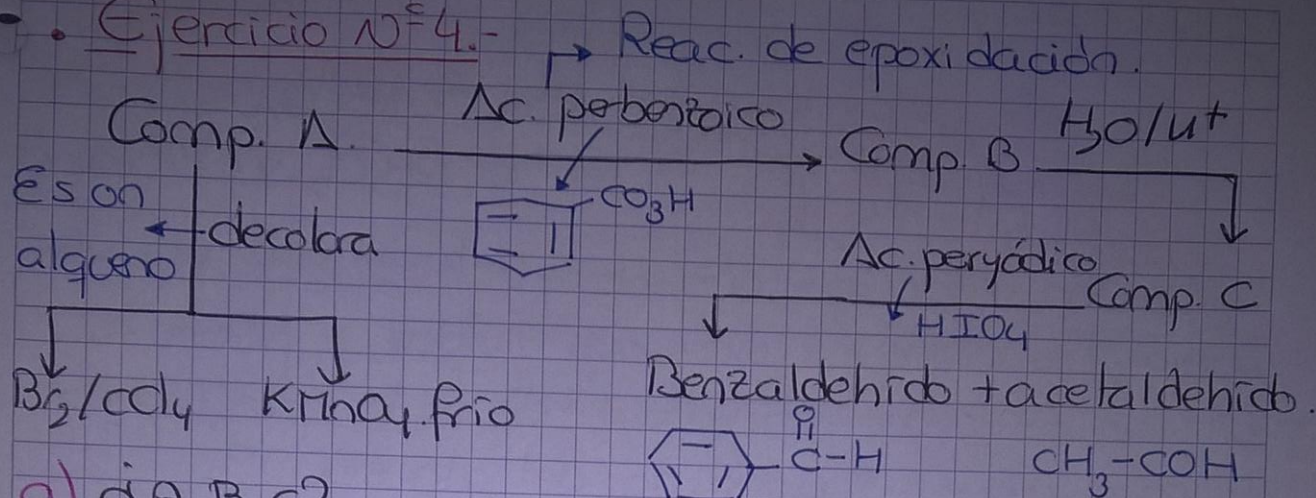 . Ejercicio Nº4.-
Reac. de epoxidación.
Comp. A. Ac. perbenzoico Comp. B H3O/H+
CO3H
Es un
alqueno
decolora
Ac. peryódico Comp. C
HIO4
Br2/CCl4 KMnO4 frio
Benzaldehído + acetaldehído.
O
C-H CH3-COH